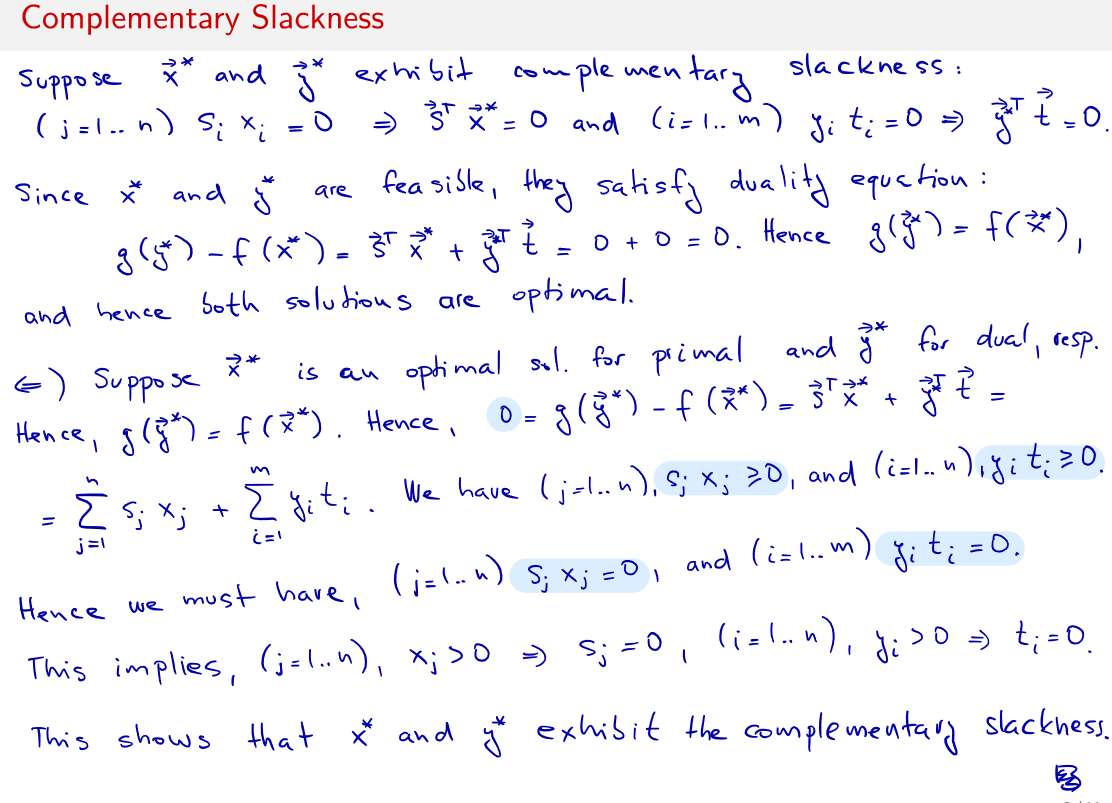 Complementary Slackness
Suppose x⃗* and y⃗* exhibit complementary slackness:
(j=1..n) s_i x_i = 0 ⇒ s⃗ᵀ x⃗* = 0 and (i=1..m) y_i t_i = 0 ⇒ y⃗*ᵀ t⃗ = 0.
Since x⃗* and y⃗* are feasible, they satisfy duality equction:
g(y⃗*) − f(x⃗*) = s⃗ᵀ x⃗* + y⃗*ᵀ t⃗ = 0 + 0 = 0. Hence g(y⃗*) = f(x⃗*),
and hence both solutions are optimal.
⇐) Suppose x⃗* is an optimal sol. for primal and y⃗* for dual, resp.
Hence, g(y⃗*) = f(x⃗*). Hence, 0 = g(y⃗*) − f(x⃗*) = s⃗ᵀ x⃗* + y⃗*ᵀ t⃗ =
= ∑_{j=1}^{n} s_j x_j + ∑_{i=1}^{m} y_i t_i. We have (j=1..n), s_j x_j ≥ 0, and (i=1..n), y_i t_i ≥ 0.
Hence we must have, (j=1..n) s_j x_j = 0, and (i=1..m) y_i t_i = 0.
This implies, (j=1..n), x_j > 0 ⇒ s_j = 0, (i=1..n), y_i > 0 ⇒ t_i = 0.
This shows that x* and y⃗* exhibit the complementary slackness.